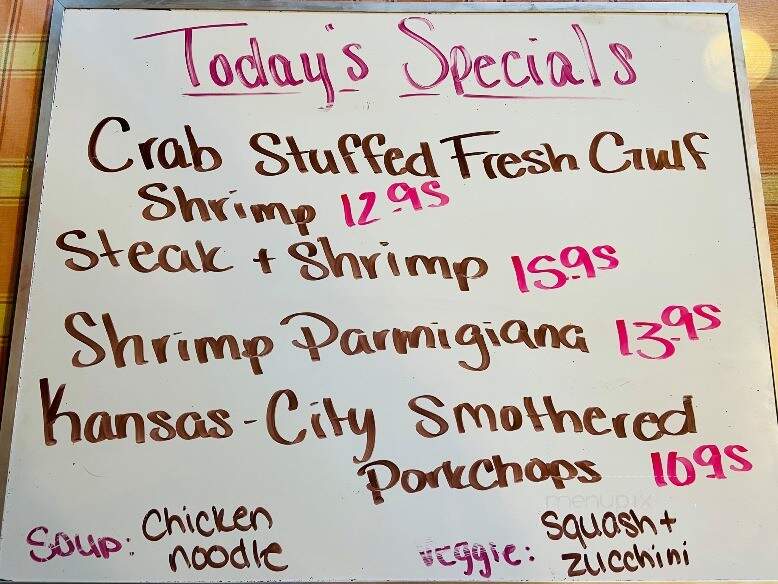 Today's Specials
Crab Stuffed Fresh Gulf
Shrimp 12.95
Steak + Shrimp 15.95
Shrimp Parmigiana 13.95
Kansas-City Smothered
Porkchops 1095
menupix
Soup: Chicken noodle
Veggie: Squash + zucchini